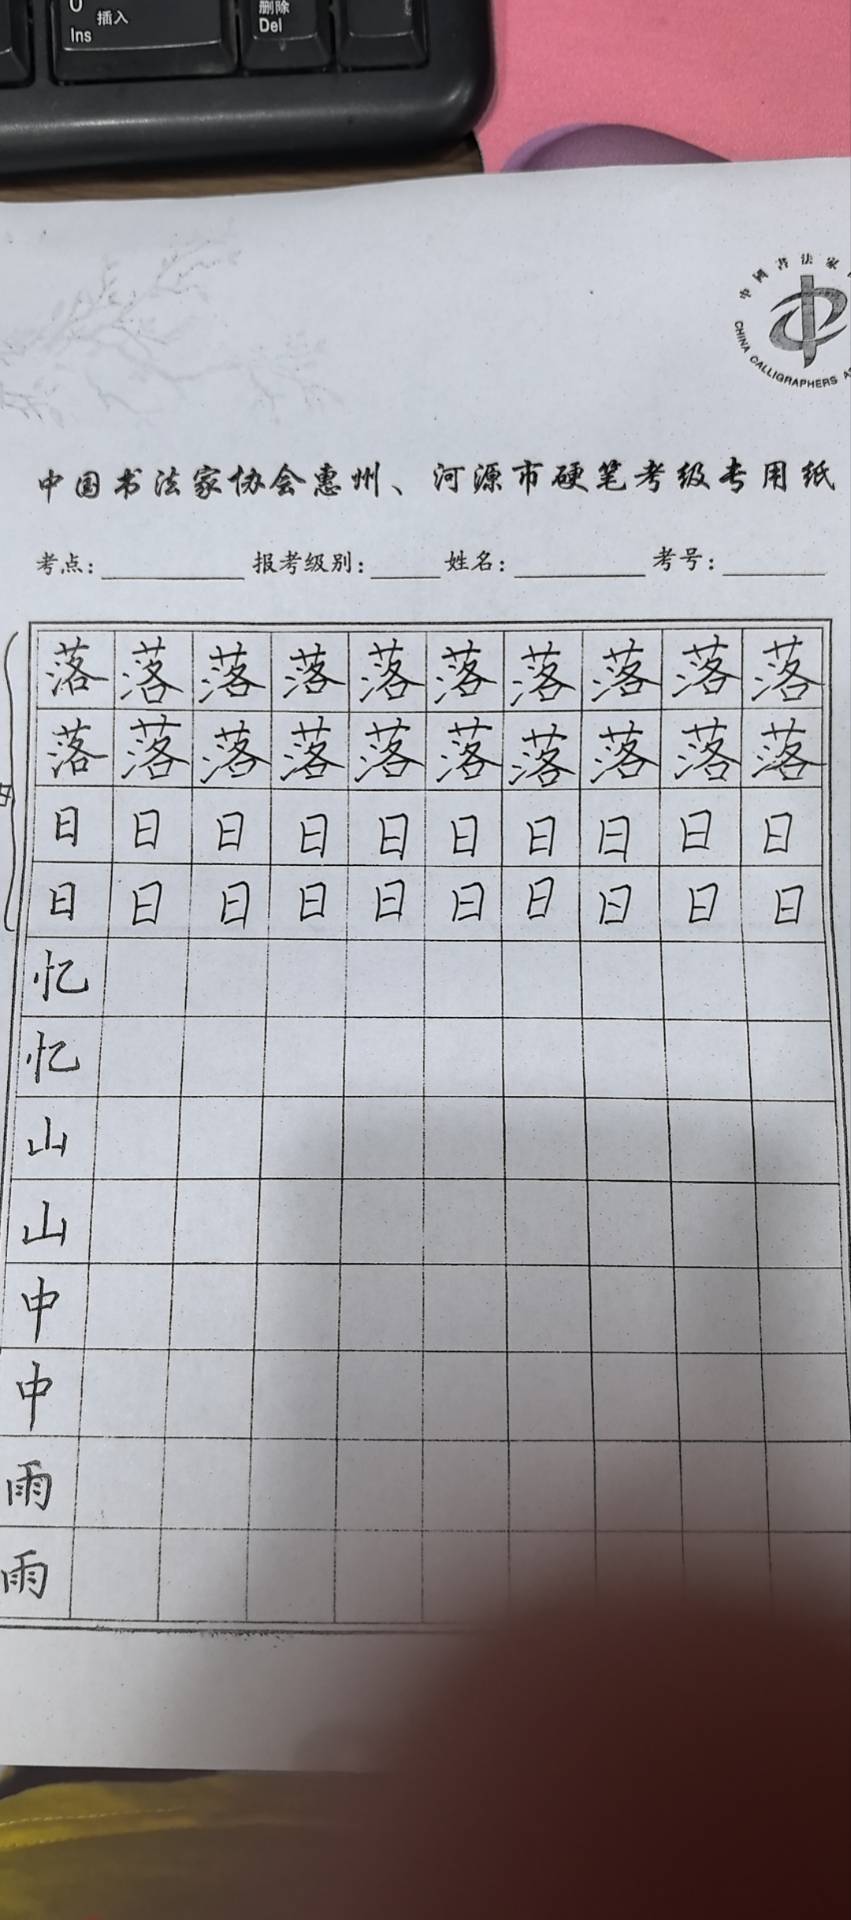 U 插入 删除
Ins Del
中國书法家
CHINA CALLIGRAPHERS
中国书法家协会惠州、河源市硬笔考级专用纸
考点: 报考级别: 姓名: 考号:
落 落 落 落 落 落 落 落 落 落
落 落 落 落 落 落 落 落 落 落
日 日 日 日 日 日 日 日 日 日
日 日 日 日 日 日 日 日 日 日
忆
忆
山
山
中
中
雨
雨